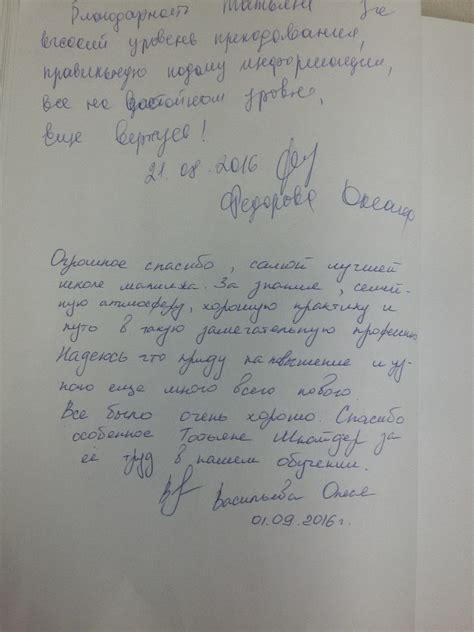 Благодарность Татьяне за
высокий уровень преподавания,
правильную подачу информации,
все на достойном уровне,
еще вернусь!
21.08.2016
Федорова
Огромное спасибо, самой лучшей
школе маникюра. За знание, семей-
ную атмосферу, хорошую практику и
путь в такую замечательную профессию
Надеюсь что приду на повышение и уз-
наю еще много всего нового.
Все было очень хорошо. Спасибо
особенное Татьяне Шнайдер за
её труд в нашем обучении.
Васильева Олеся
01.09.2016г.